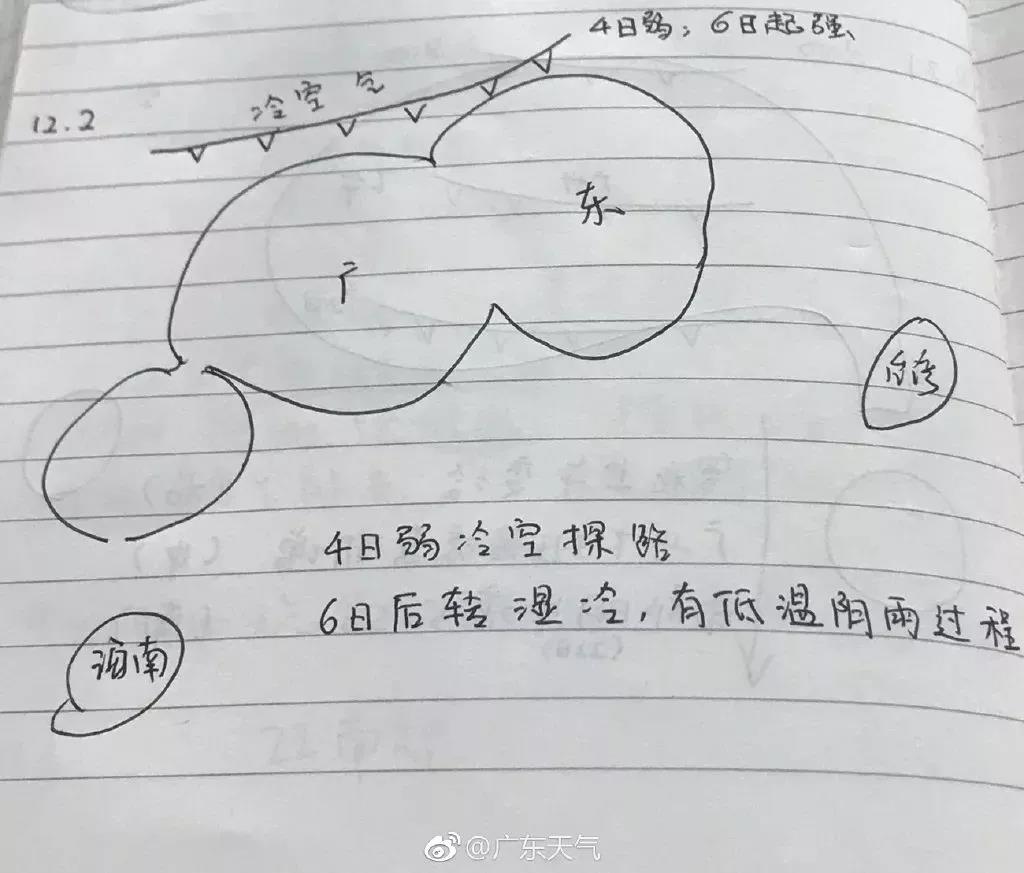 4日弱；6日起强
冷空气
12.2
东
广
台湾
4日弱冷空探路
6日后转湿冷，有低温阴雨过程
海南
@广东天气